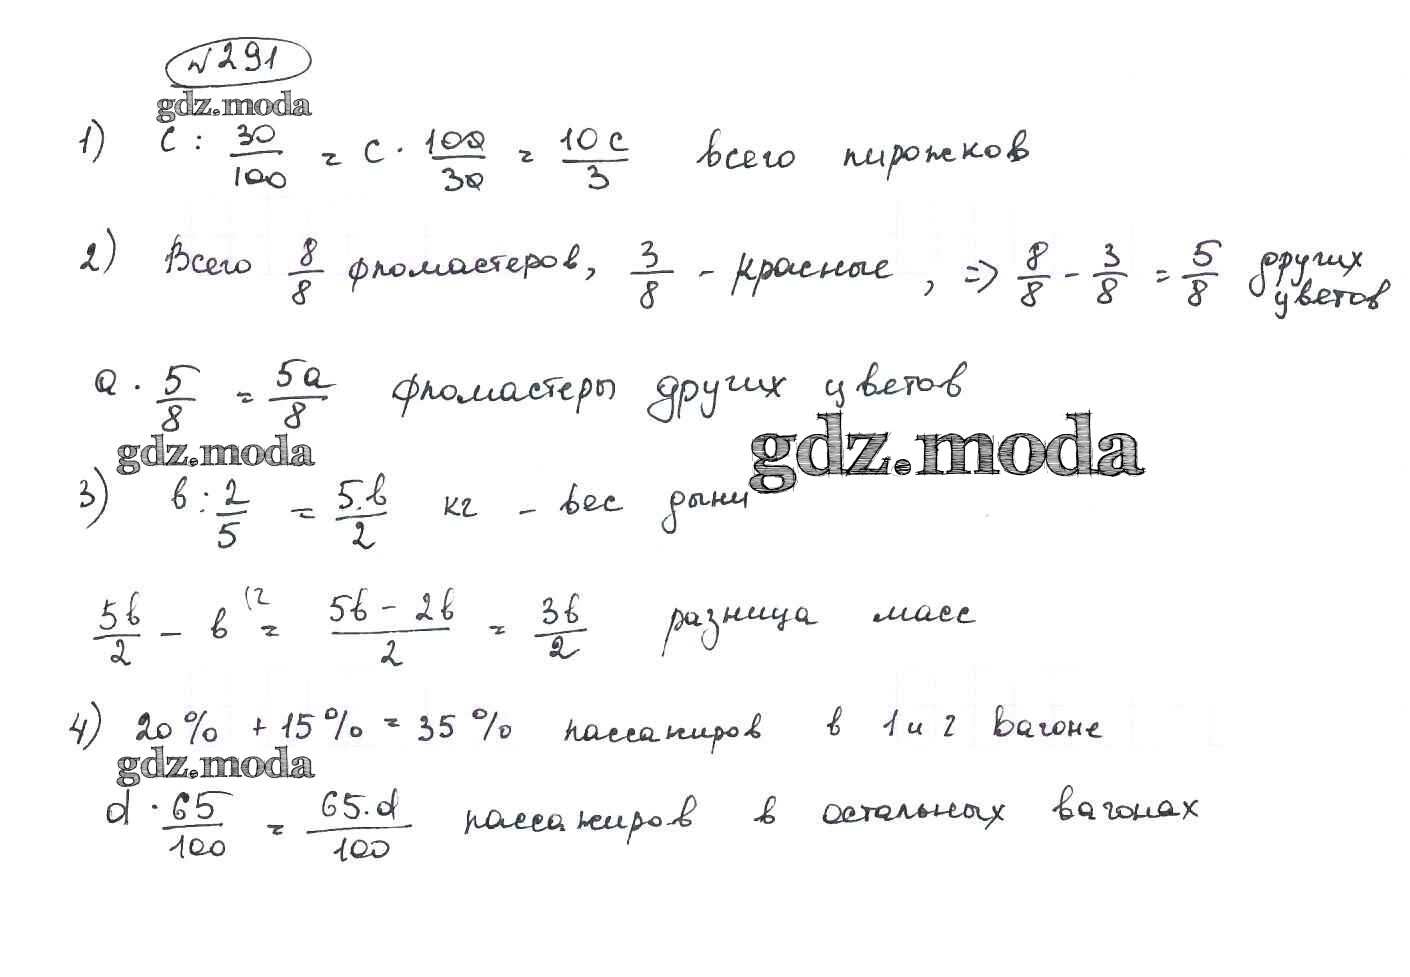 №291
gdz.moda
1) c : 30/100 = c · 100/30 = 10c/3 всего пирожков
2) Всего 8/8 фломастеров, 3/8 - красные, => 8/8 - 3/8 = 5/8 других цветов
a · 5/8 = 5a/8 фломастеры других цветов
gdz.moda
gdz.moda
3) b : 2/5 = 5·b/2 кг - вес дыни
5b/2 - b (2 = 5b - 2b/2 = 3b/2 разница масс
4) 20% + 15% = 35% пассажиров в 1 и 2 вагоне
gdz.moda
d · 65/100 = 65·d/100 пассажиров в остальных вагонах